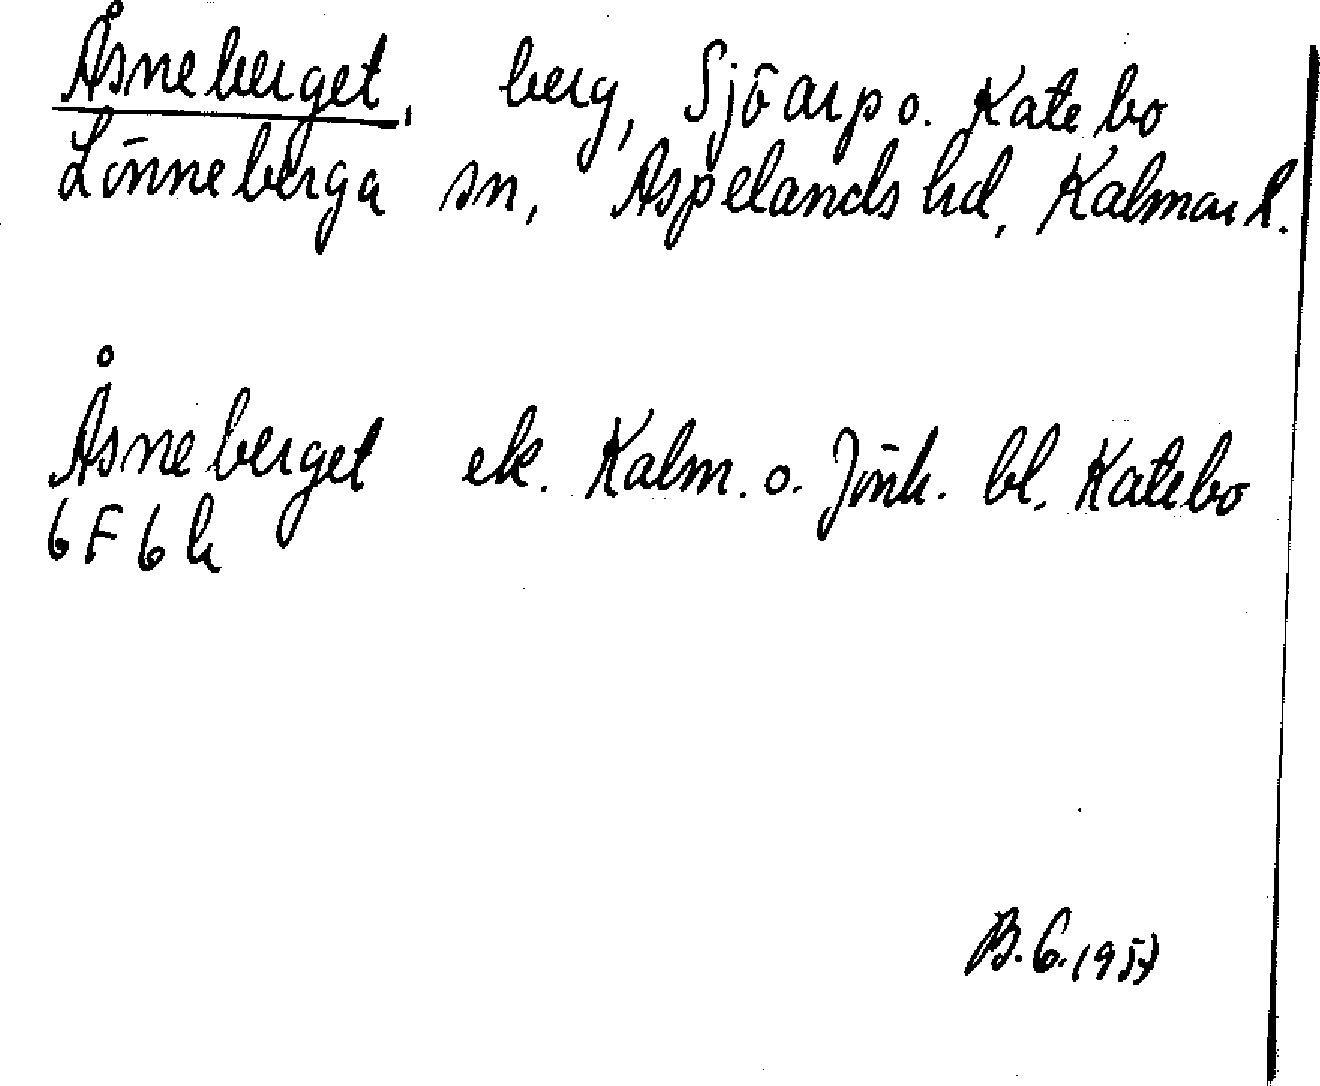 Åsneberget, berg, Sjöarp o. Katebo
Lönneberga sn, Aspelands hd, Kalmar l.
Åsneberget ek. Kalm. o. Jönk. bl. Katebo
6 F 6 h
B. G. 1957